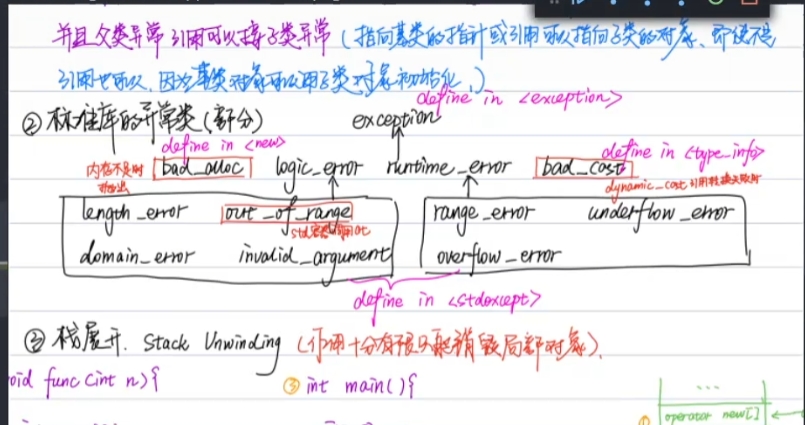 并且父类异常引用可以接子类异常（指向基类的指针或引用可以指向子类的对象、即使不是
引用也可以、因为基类对象可以用子类对象初始化、）
define in <exception>
② 标准库的异常类（部分） exception
define in <new>
define in <type_info>
内存不足时 抛出 bad_alloc logic_error runtime_error bad_cast
dynamic_cast 引用转换失败时
length_error out_of_range range_error underflow_error
std容器 at
domain_error invalid_argument overflow_error
define in <stdexcept>
③ 栈展开. Stack Unwinding （作用十分有限只能销毁局部对象）.
oid func(int n){ ③ int main(){
...
① operator new[]